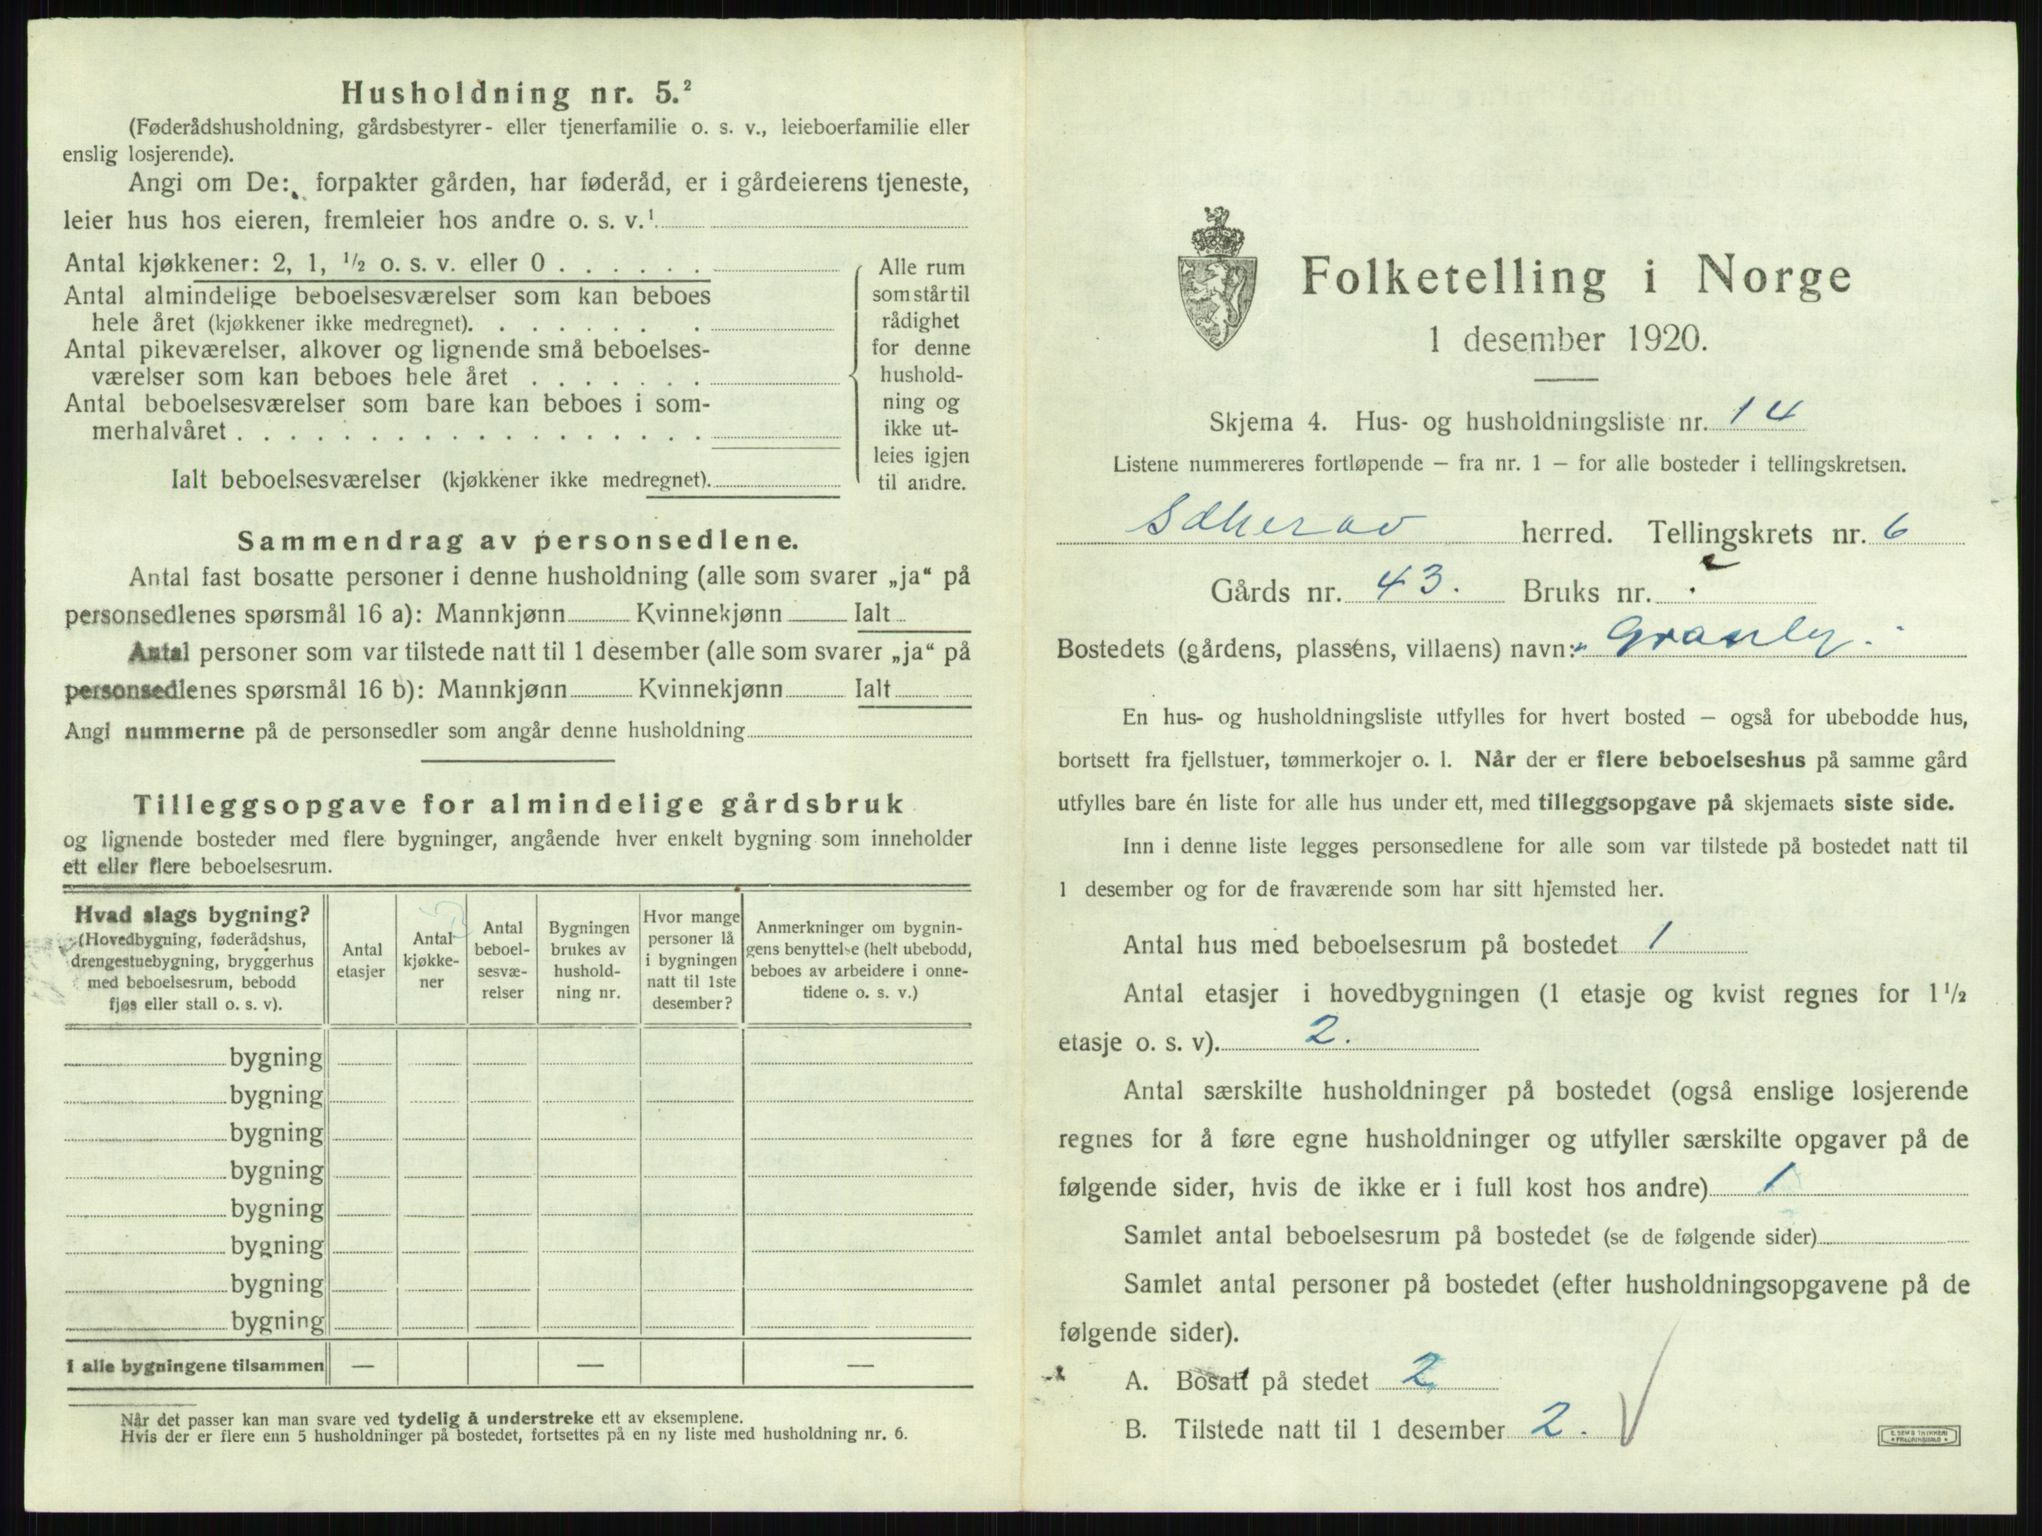 Husholdning nr. 5.²
(Føderådshusholdning, gårdsbestyrer- eller tjenerfamilie o. s. v., leieboerfamilie eller
enslig losjerende).
Angi om De: forpakter gården, har føderåd, er i gårdeierens tjeneste,
leier hus hos eieren, fremleier hos andre o. s. v.¹
Antal kjøkkener: 2, 1, ½ o. s. v. eller 0 . . . . . .
Antal almindelige beboelsesværelser som kan beboes
hele året (kjøkkener ikke medregnet). . . . . . . .
Antal pikeværelser, alkover og lignende små beboelses-
værelser som kan beboes hele året . . . . . . .
Antal beboelsesværelser som bare kan beboes i som-
merhalvåret . . . . . . . . . . . . . . . . . .
Ialt beboelsesværelser (kjøkkener ikke medregnet).
Alle rum
som står til
rådighet
for denne
hushold-
ning og
ikke ut-
leies igjen
til andre.
Sammendrag av personsedlene.
Antal fast bosatte personer i denne husholdning (alle som svarer „ja“ på
personsedlenes spørsmål 16 a): Mannkjønn Kvinnekjønn Ialt
Antal personer som var tilstede natt til 1 desember (alle som svarer „ja“ på
personsedlenes spørsmål 16 b): Mannkjønn Kvinnekjønn Ialt
Angi nummerne på de personsedler som angår denne husholdning
Tilleggsopgave for almindelige gårdsbruk
og lignende bosteder med flere bygninger, angående hver enkelt bygning som inneholder
ett eller flere beboelsesrum.
Hvad slags bygning?
(Hovedbygning, føderådshus,
drengestuebygning, bryggerhus
med beboelsesrum, bebodd
fjøs eller stall o. s. v).
Antal
etasjer
Antal
kjøkke-
ner
Antal
beboel-
sesvæ-
relser
Bygningen
brukes av
hushold-
ning nr.
Hvor mange
personer lå
i bygningen
natt til 1ste
desember?
Anmerkninger om bygnin-
gens benyttelse (helt ubebodd,
beboes av arbeidere i onne-
tidene o. s. v.)
bygning
bygning
bygning
bygning
bygning
bygning
bygning
bygning
I alle bygningene tilsammen — — —
Når det passer kan man svare ved tydelig å understreke ett av eksemplene.
Hvis der er flere enn 5 husholdninger på bostedet, fortsettes på en ny liste med husholdning nr. 6.
Folketelling i Norge
1 desember 1920.
Skjema 4. Hus- og husholdningsliste nr. 14
Listene nummereres fortløpende – fra nr. 1 – for alle bosteder i tellingskretsen.
herred. Tellingskrets nr. 6
Gårds nr. 43. Bruks nr.
Bostedets (gårdens, plassens, villaens) navn: Granly.
En hus- og husholdningsliste utfylles for hvert bosted – også for ubebodde hus,
bortsett fra fjellstuer, tømmerkojer o. l. Når der er flere beboelseshus på samme gård
utfylles bare én liste for alle hus under ett, med tilleggsopgave på skjemaets siste side.
Inn i denne liste legges personsedlene for alle som var tilstede på bostedet natt til
1 desember og for de fraværende som har sitt hjemsted her.
Antal hus med beboelsesrum på bostedet 1
Antal etasjer i hovedbygningen (1 etasje og kvist regnes for 1½
etasje o. s. v). 2.
Antal særskilte husholdninger på bostedet (også enslige losjerende
regnes for å føre egne husholdninger og utfyller særskilte opgaver på de
følgende sider, hvis de ikke er i full kost hos andre) 1
Samlet antal beboelsesrum på bostedet (se de følgende sider)
Samlet antal personer på bostedet (efter husholdningsopgavene på de
følgende sider).
A. Bosatt på stedet 2
B. Tilstede natt til 1 desember 2.